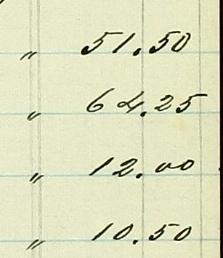 " 51.50
" 64.25
" 12.00
" 10.50